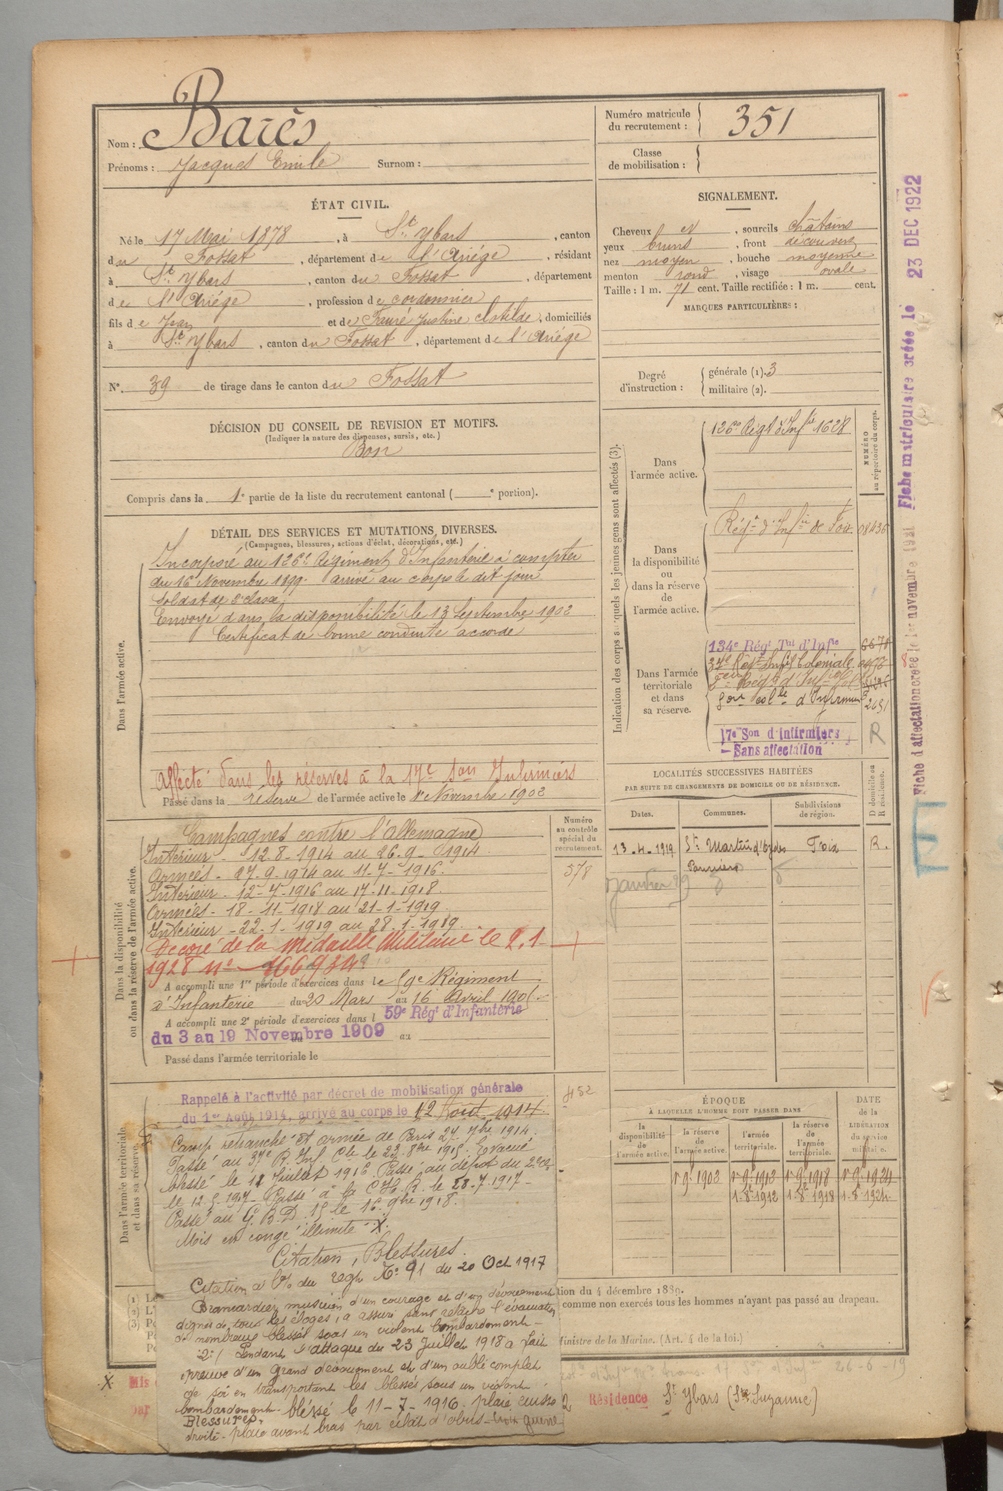 Nom : Barès
Prénoms : Jacques Emile Surnom :
Numéro matricule du recrutement : 351
Classe de mobilisation :
ÉTAT CIVIL.
Né le 17 Mai 1878, à St Ybars, canton
du Fossat, département de l'Ariège, résidant
à St Ybars, canton du Fossat, département
de l'Ariège, profession de cordonnier
fils de Jean et de Fauré Justine Clotilde, domiciliés
à St Ybars, canton du Fossat, département de l'Ariège
N°. 39 de tirage dans le canton du Fossat
SIGNALEMENT.
Cheveux et, sourcils châtains
yeux bruns, front découvert
nez moyen, bouche moyenne
menton rond, visage ovale
Taille : 1 m. 71 cent. Taille rectifiée : 1 m. cent.
MARQUES PARTICULIÈRES :
Degré d'instruction : générale (1). 3
militaire (2).
DÉCISION DU CONSEIL DE REVISION ET MOTIFS.
(Indiquer la nature des dispenses, sursis, etc.)
Bon
Compris dans la 1e partie de la liste du recrutement cantonal ( e portion).
DÉTAIL DES SERVICES ET MUTATIONS DIVERSES.
(Campagnes, blessures, actions d'éclat, décorations, etc.)
Dans l'armée active.
Incorporé au 126e Régiment d'Infanterie à compter
du 16 Novembre 1899 arrivé au corps le dit jour
Soldat de 2e classe
Envoyé dans la disponibilité le 13 Septembre 1902
Certificat de bonne conduite accordé
Affecté dans les réserves à la 17e Son Infirmiers
Passé dans la réserve de l'armée active le 1er Novembre 1902
Dans la disponibilité ou dans la réserve de l'armée active.
Campagnes contre l'Allemagne
Intérieur - 12-8-1914 au 26-9-1914
Armées - 27-9-1914 au 11-7-1916
Intérieur - 12-7-1916 au 17-11-1918
Armées - 18-11-1918 au 21-1-1919
Intérieur - 22-1-1919 au 28-1-1919
Décoré de la médaille Militaire le 2.1
1928 n°
A accompli une 1re période d'exercices dans le Régiment
d'Infanterie du 20 Mars au 16 Avril
A accompli une 2e période d'exercices dans l 59e Rég' d'Infanterie
du 3 au 19 Novembre 1909 au
Passé dans l'armée territoriale le
Numéro au contrôle spécial du recrutement.
378
452
Indication des corps auxquels les jeunes gens sont affectés (3).
NUMÉRO au répertoire du corps.
Dans l'armée active.
126e Régt d'Infie 1628
Dans la disponibilité ou dans la réserve de l'armée active.
Régt d'Infie de Foix
Dans l'armée territoriale et dans sa réserve.
134e Régt Tal d'Infie
37e Régt Infie Coloniale
17e Son d'infirmiers R
— Sans affectation
LOCALITÉS SUCCESSIVES HABITÉES
PAR SUITE DE CHANGEMENTS DE DOMICILE OU DE RÉSIDENCE.
Dates. Communes. Subdivisions de région. D domicile ou R résidence.
13-4-1919 St Martin d'Oydes Foix R.
Pamiers
ÉPOQUE
À LAQUELLE L'HOMME DOIT PASSER DANS
DATE de la LIBÉRATION du service militaire.
la disponibilité de l'armée active. la réserve de l'armée active. l'armée territoriale. la réserve de l'armée territoriale.
Dans l'armée territoriale et dans sa réserve.
Rappelé à l'activité par décret de mobilisation générale
du 1er Août 1914, arrivé au corps le 12 Août 1914
Camp retranché et armée de Paris 27 7bre 1914.
Passé au 37e R. Inf. Cle le 22 8bre 1915. Evacué
blessé le 11 Juillet 1916 Passé au dépôt du
le 12-5-1917 Passé à la C.H.R. le 28-7-1917
Passé au G.B.D. 15 le 16 9bre 1918
Mois en congé illimité X.
Citation, Blessures.
Citation à l'O. du régt N° 91 du 20 Oct 1917
Brancardier musicien d'un courage et d'un dévouement
dignes de tous les éloges, a assuré sans relâche l'évacuation
de nombreux blessés sous un violent bombardement -
2°/ Pendant l'attaque du 23 Juillet 1918 a fait
épreuve d'un grand dévouement et d'un oubli complet
de soi en transportant les blessés sous un violent
bombardement - blessé le 11-7-1916 plaie cuisse
Blessures.
droite - plaie avant bras par éclat d'obus
tion du 4 décembre 1889.
comme non exercés tous les hommes n'ayant pas passé au drapeau.
Ministre de la Marine. (Art. 4 de la loi.)
26-6-19
Résidence St Ybars (Ste Suzanne)
Fiche matriculaire créée le 23 DEC 1922
Fiche d'affectation créée le 1er novembre 1921